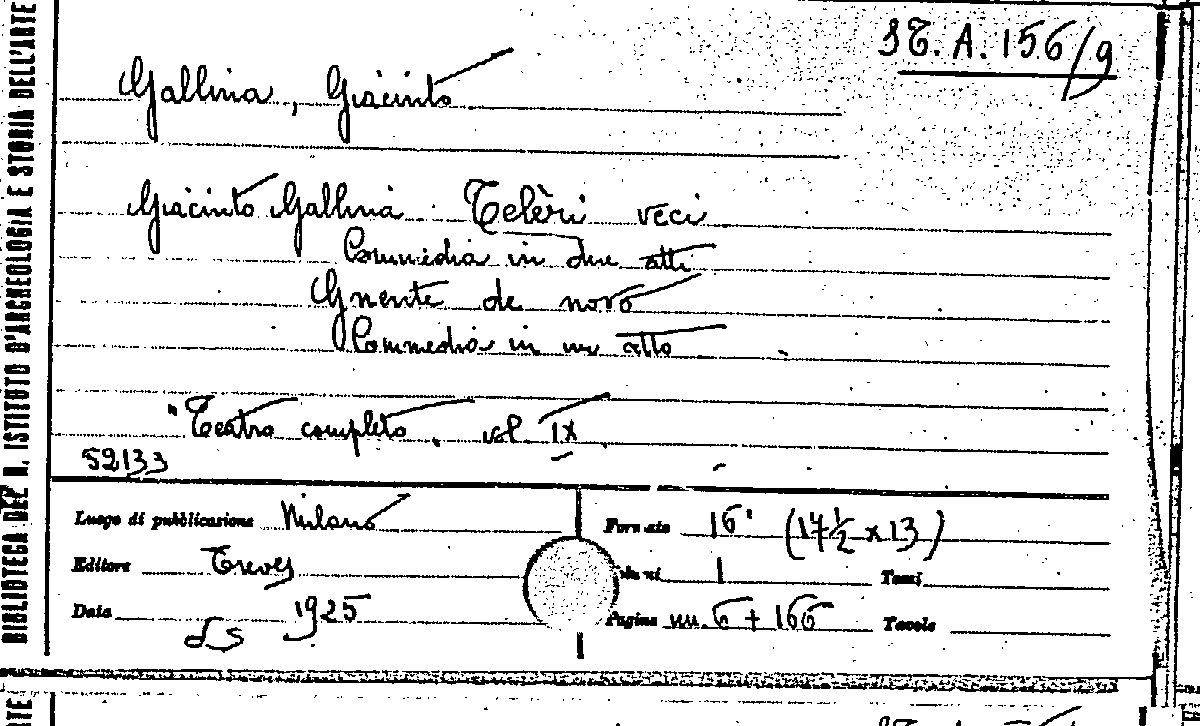 ST. A. 156/9
Gallina, Giacinto
Giacinto Gallina. Telèri veci
Commedia in due atti
Gnente de novo
Commedia in un atto
"Teatro completo. vol. IX
52133
Luogo di pubblicazione Milano
Formato 16° (17½ x 13)
Editore Treves
Volumi 1 Tomi
Data 1925
Pagine nn. 6 + 166 Tavole
LS
BIBLIOTECA DEL R. ISTITUTO D'ARCHEOLOGIA E STORIA DELL'ARTE